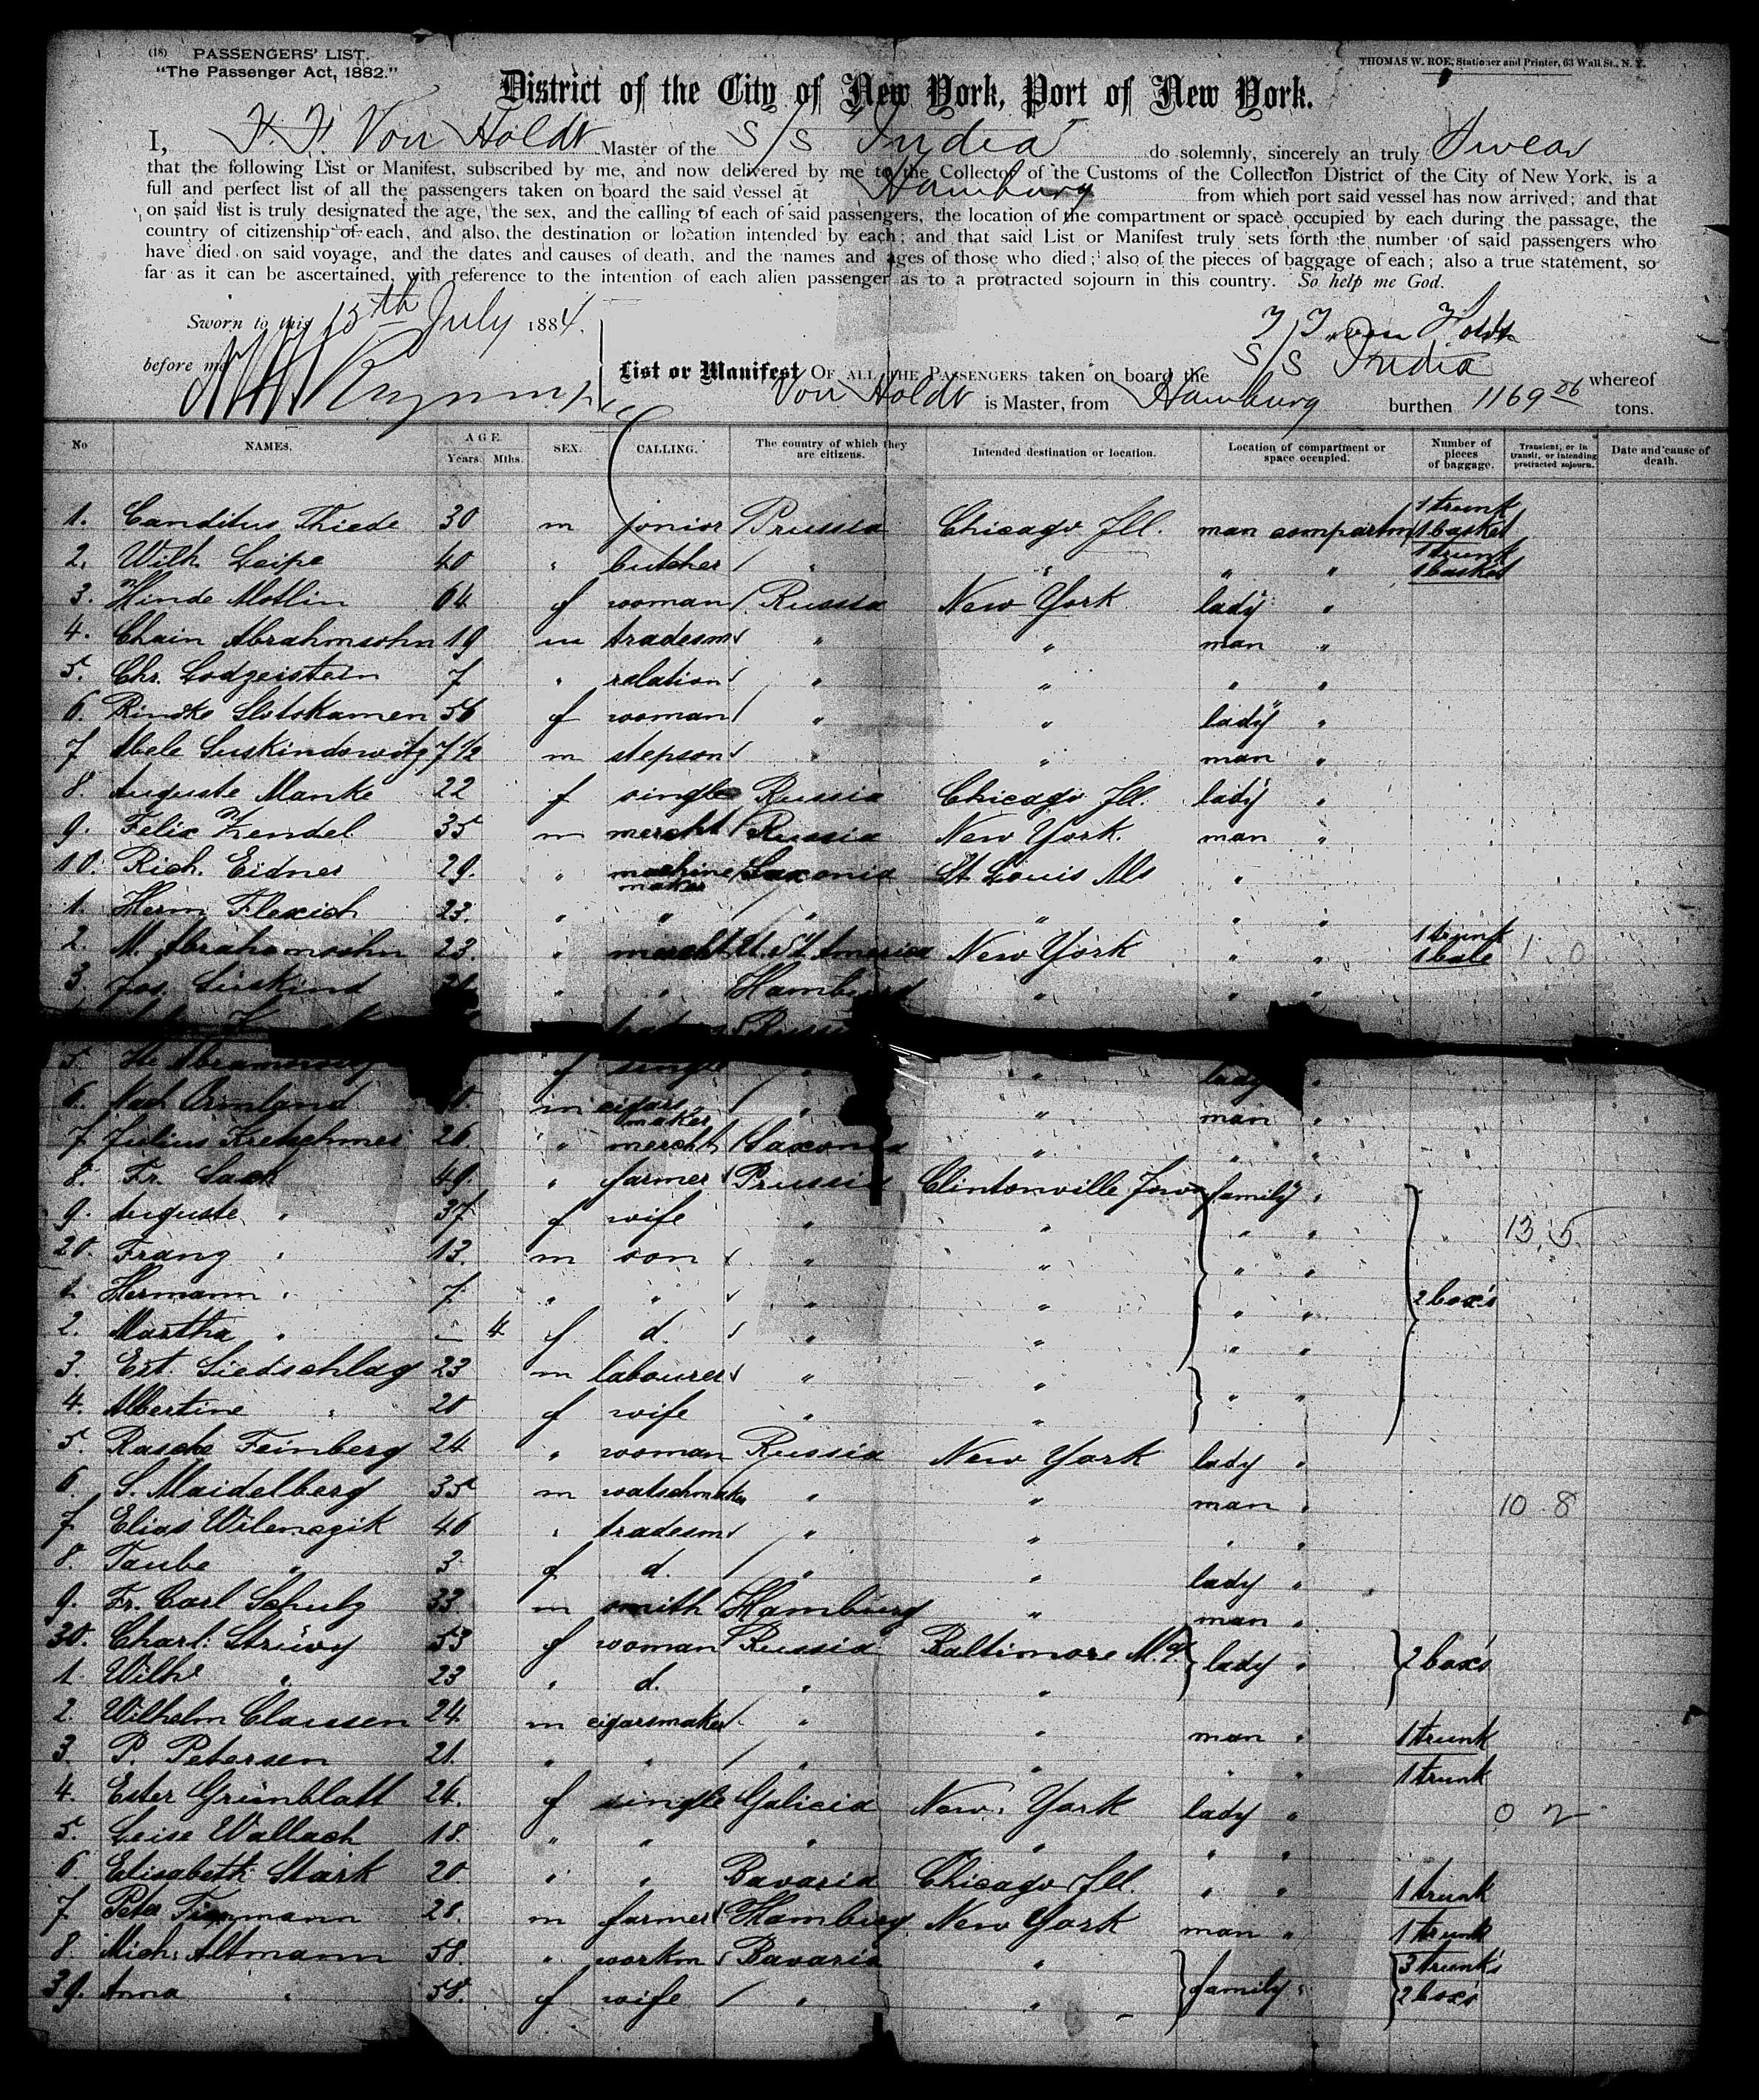 (18) PASSENGERS' LIST.
"The Passenger Act, 1882."
THOMAS W. ROE, Stationer and Printer, 63 Wall St., N. Y.
District of the City of New York, Port of New York.
I, Von Holdt Master of the S/S India do solemnly, sincerely an truly Swear
that the following List or Manifest, subscribed by me, and now delivered by me to the Collector of the Customs of the Collection District of the City of New York, is a
full and perfect list of all the passengers taken on board the said vessel at Hamburg from which port said vessel has now arrived; and that
on said list is truly designated the age, the sex, and the calling of each of said passengers, the location of the compartment or space occupied by each during the passage, the
country of citizenship of each, and also, the destination or location intended by each; and that said List or Manifest truly sets forth the number of said passengers who
have died on said voyage, and the dates and causes of death, and the names and ages of those who died; also of the pieces of baggage of each; also a true statement, so
far as it can be ascertained, with reference to the intention of each alien passenger as to a protracted sojourn in this country. So help me God.
Sworn to this 15th July 1884.
von Holdt
before me
List or Manifest OF ALL THE PASSENGERS taken on board the S/S India whereof
Von Holdt is Master, from Hamburg burthen 1169 06 tons.
No NAMES. AGE. Years. Mths. SEX. CALLING. The country of which they are citizens. Intended destination or location. Location of compartment or space occupied. Number of pieces of baggage. Transient, or in transit, or intending protracted sojourn. Date and cause of death.
1. Canditus Thiede 30 m junior Prussia Chicago Ill. man compartm 1 trunk 1 basket
2. Wilh Leipe 40 " butcher " " " " 1 trunk 1 basket
3. Hinde Motlin 64 f woman Russia New York lady "
4. Chain Abrahmsohn 19 m tradesm " " man "
5. Chr. Lodgeistein 7 " relation " " " "
6. Rindke Slotskamen 56 f woman " " lady "
7 Abele Suskindowitz 7 1/2 m stepson " " man "
8. Auguste Manke 22 f single Russia Chicago Ill. lady "
9. Felix Zendel 35 m mercht Russia New York. man "
10. Rich. Eidner 29. " machine maker Saxonia St Louis Mo "
1. Herm. Flexich 23. " " " " " "
2. M. Abrahamsohn 23. " mercht U. St. America New York " " 1 trunk 1 bale 1 0
3. Jos. Süskind " " Hamburg " " "
5. f single " " lady "
6. m cigars maker " " man "
7 Julius Kretschmer 26 " mercht Saxonia " " "
8. Fr. Sack 49. " farmer Prussia Clintonville Iow family "
9. Auguste " 37 f wife " " " " 13. 5.
20. Franz " 13. m son " " " "
1. Hermann " 7 " " " " " " 2 box's
2. Martha " – 4 f d. " " " "
3. Est. Siedschlag 23 m labourer " " " "
4. Albertine " 20 f wife " "
5. Rasche Feinberg 24 " woman Russia New York lady "
6. S. Maidelberg 35 m watschmaker " " man " 10 8
7 Elias Wilenczik 46 " tradesm " " " "
8. Taube " 3 f d. " " lady "
9. Fr. Carl Schulz 33. m smith Hamburg " man "
30. Charl. Strüwy 53 f woman Russia Baltimore M.d. lady " 2 box's
1. Wilh. " 23 " d. " "
2. Wilhelm Claussen 24 m cigarsmaker " " man " 1 trunk
3. P. Petersen 21. " " " " " " 1 trunk
4. Ester Grünblatt 24. f single Galicia New York lady " 0 2
5. Leise Wallach 18. " " " " " "
6 Elisabeth Stark 20 " " Bavaria Chicago Ill. " " 1 trunk
7 Peter Timmann 28. m farmer Hamburg New York man " 1 trunk
8. Mich. Altmann 58. " workm Bavaria " family " 3 trunk's
39. Anna " 58. f wife " " 2 box's